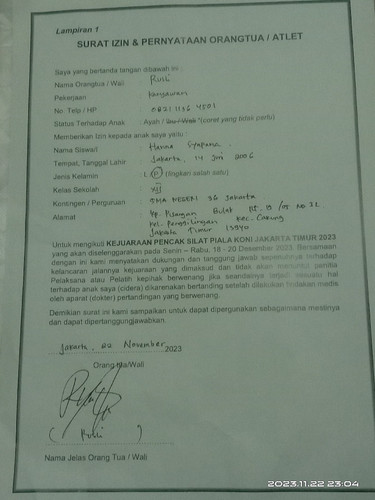 Lampiran 1
SURAT IZIN & PERNYATAAN ORANGTUA / ATLET
Saya yang bertanda tangan dibawah ini :
Nama Orangtua / Wali : Rulli
Pekerjaan : karyawan
No. Telp / HP : 0821 1136 4501
Status Terhadap Anak : Ayah / Ibu / Wali *(coret yang tidak perlu)
Memberikan Izin kepada anak saya yaitu :
Nama Siswa/i : Hanna
Tempat, Tanggal Lahir : Jakarta, 14 Juni 2006
Jenis Kelamin : L / P (lingkari salah satu)
Kelas Sekolah : XII
Kontingen / Perguruan : SMA NEGERI 36 Jakarta
Alamat : Kp. Pisangan Bulat RT. 13 / 05 No 22
Kel. Penggilingan Kec. Cakung
Jakarta Timur 13940
Untuk mengikuti KEJUARAAN PENCAK SILAT PIALA KONI JAKARTA TIMUR 2023
yang akan diselenggarakan pada Senin – Rabu, 18 - 20 Desember 2023. Bersamaan
dengan ini kami menyatakan dukungan dan tanggung jawab sepenuhnya terhadap
kelancaran jalannya kejuaraan yang dimaksud dan tidak akan menuntut panitia
Pelaksana atau Pelatih kepihak berwenang jika seandainya terjadi sesuatu hal
terhadap anak saya (cidera) dikarenakan bertanding setelah dilakukan tindakan medis
oleh aparat (dokter) pertandingan yang berwenang.
Demikian surat ini kami sampaikan untuk dapat dipergunakan sebagaimana mestinya
dan dapat dipertanggungjawabkan.
Jakarta, 20 November 2023
Orang tua/Wali
( Rulli )
Nama Jelas Orang Tua / Wali
2023.11.22 23:04